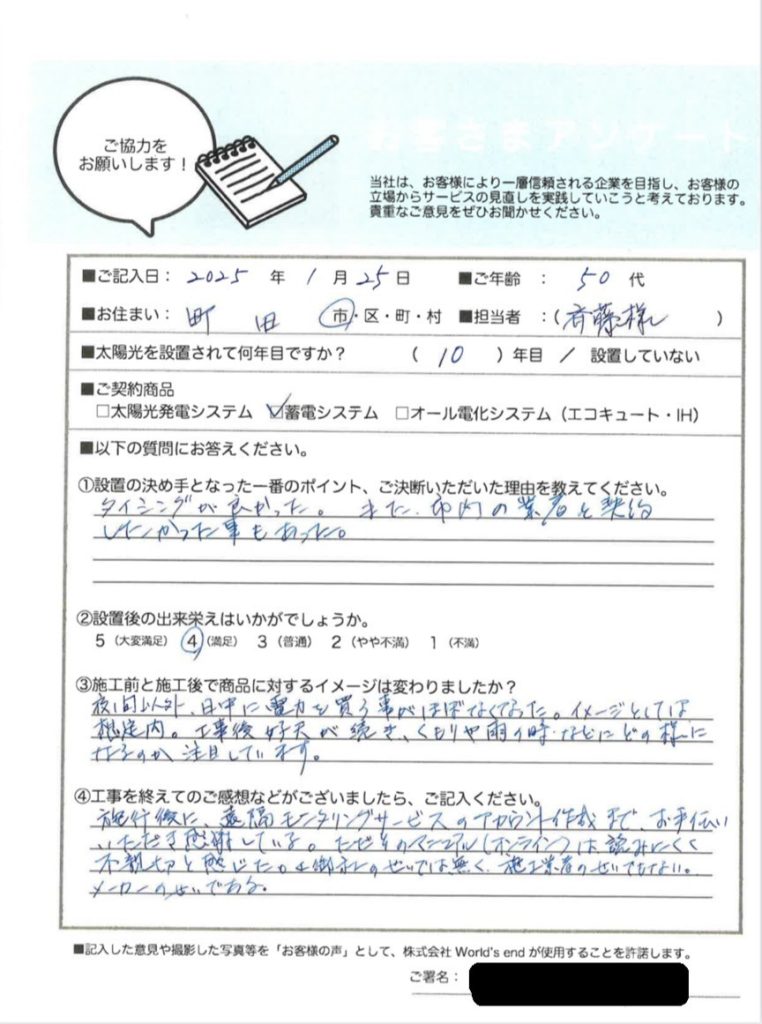 ご協力を
お願いします！
お客さまアンケート
当社は、お客様により一層信頼される企業を目指し、お客様の
立場からサービスの見直しを実践していこうと考えております。
貴重なご意見をぜひお聞かせください。
■ご記入日： 2025 年 1 月 25 日 ■ご年齢 ： 50 代
■お住まい： 町田 市・区・町・村 ■担当者 ：（斉藤様）
■太陽光を設置されて何年目ですか？ （ 10 ）年目 ／ 設置していない
■ご契約商品
□太陽光発電システム ☑蓄電システム □オール電化システム（エコキュート・IH）
■以下の質問にお答えください。
①設置の決め手となった一番のポイント、ご決断いただいた理由を教えてください。
タイミングが良かった。また、市内の業者と契約
したかった事もあった。
②設置後の出来栄えはいかがでしょうか。
5（大変満足） 4（満足） 3（普通） 2（やや不満） 1（不満）
③施工前と施工後で商品に対するイメージは変わりましたか？
夜間以外、日中に電力を買う事がほぼなくなった。イメージとしては
想定内。工事後好天が続き、くもりや雨の時などにどの様に
なるのか注目しています。
④工事を終えてのご感想などがございましたら、ご記入ください。
施行後に、遠隔モニタリングサービスのアカウント作成まで、お手伝い
いただき感謝している。ただそのマニュアル（オンライン）は読みにくく
不親切と感じた。のせいでは無く、施工業者のせいでもない。
メーカーのせいである。
■記入した意見や撮影した写真等を「お客様の声」として、株式会社 World's end が使用することを許諾します。
ご署名：